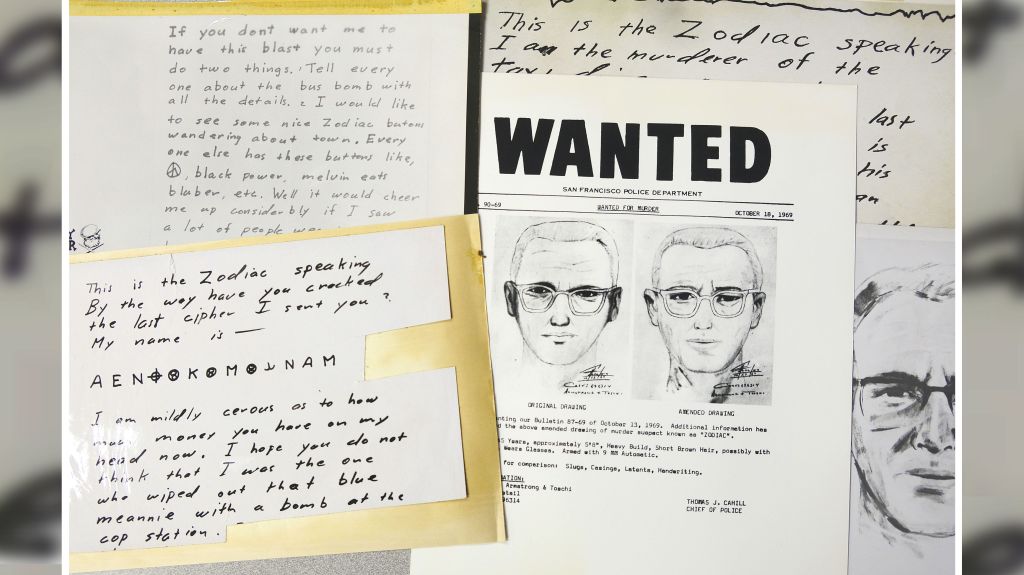 If you dont want me to
have this blast you must
do two things. Tell every
one about the bus bomb with
all the details. 2 I would like
to see some nice Zodiac butons
wandering about town. Every
one else has these buttons like,
☮, black power, melvin eats
bluber, etc. Well it would cheer
me up considerbly if I saw
a lot of people
This is the Zodiac speaking
By the way have you cracked
the last cipher I sent you?
My name is —
A E N ⌖ K M N A M
I am mildly cerous as to how
much money you have on my
head now. I hope you do not
think that I was the one
who wiped out that blue
meannie with a bomb at the
cop station.
This is the Zodiac speaking
I am the murderer of the
last
is
his
WANTED
SAN FRANCISCO POLICE DEPARTMENT
90-69 WANTED FOR MURDER OCTOBER 18, 1969
ORIGINAL DRAWING AMENDED DRAWING
nting our Bulletin 87-69 of October 13, 1969. Additional information has
d the above amended drawing of murder suspect known as "ZODIAC".
5 Years, approximately 5'8", Heavy Build, Short Brown Hair, possibly with
Wears Glasses. Armed with 9 MM Automatic.
for comparison: Slugs, Casings, Latents, Handwriting.
ATION:
Armstrong & Toschi
etail
96314
THOMAS J. CAHILL
CHIEF OF POLICE